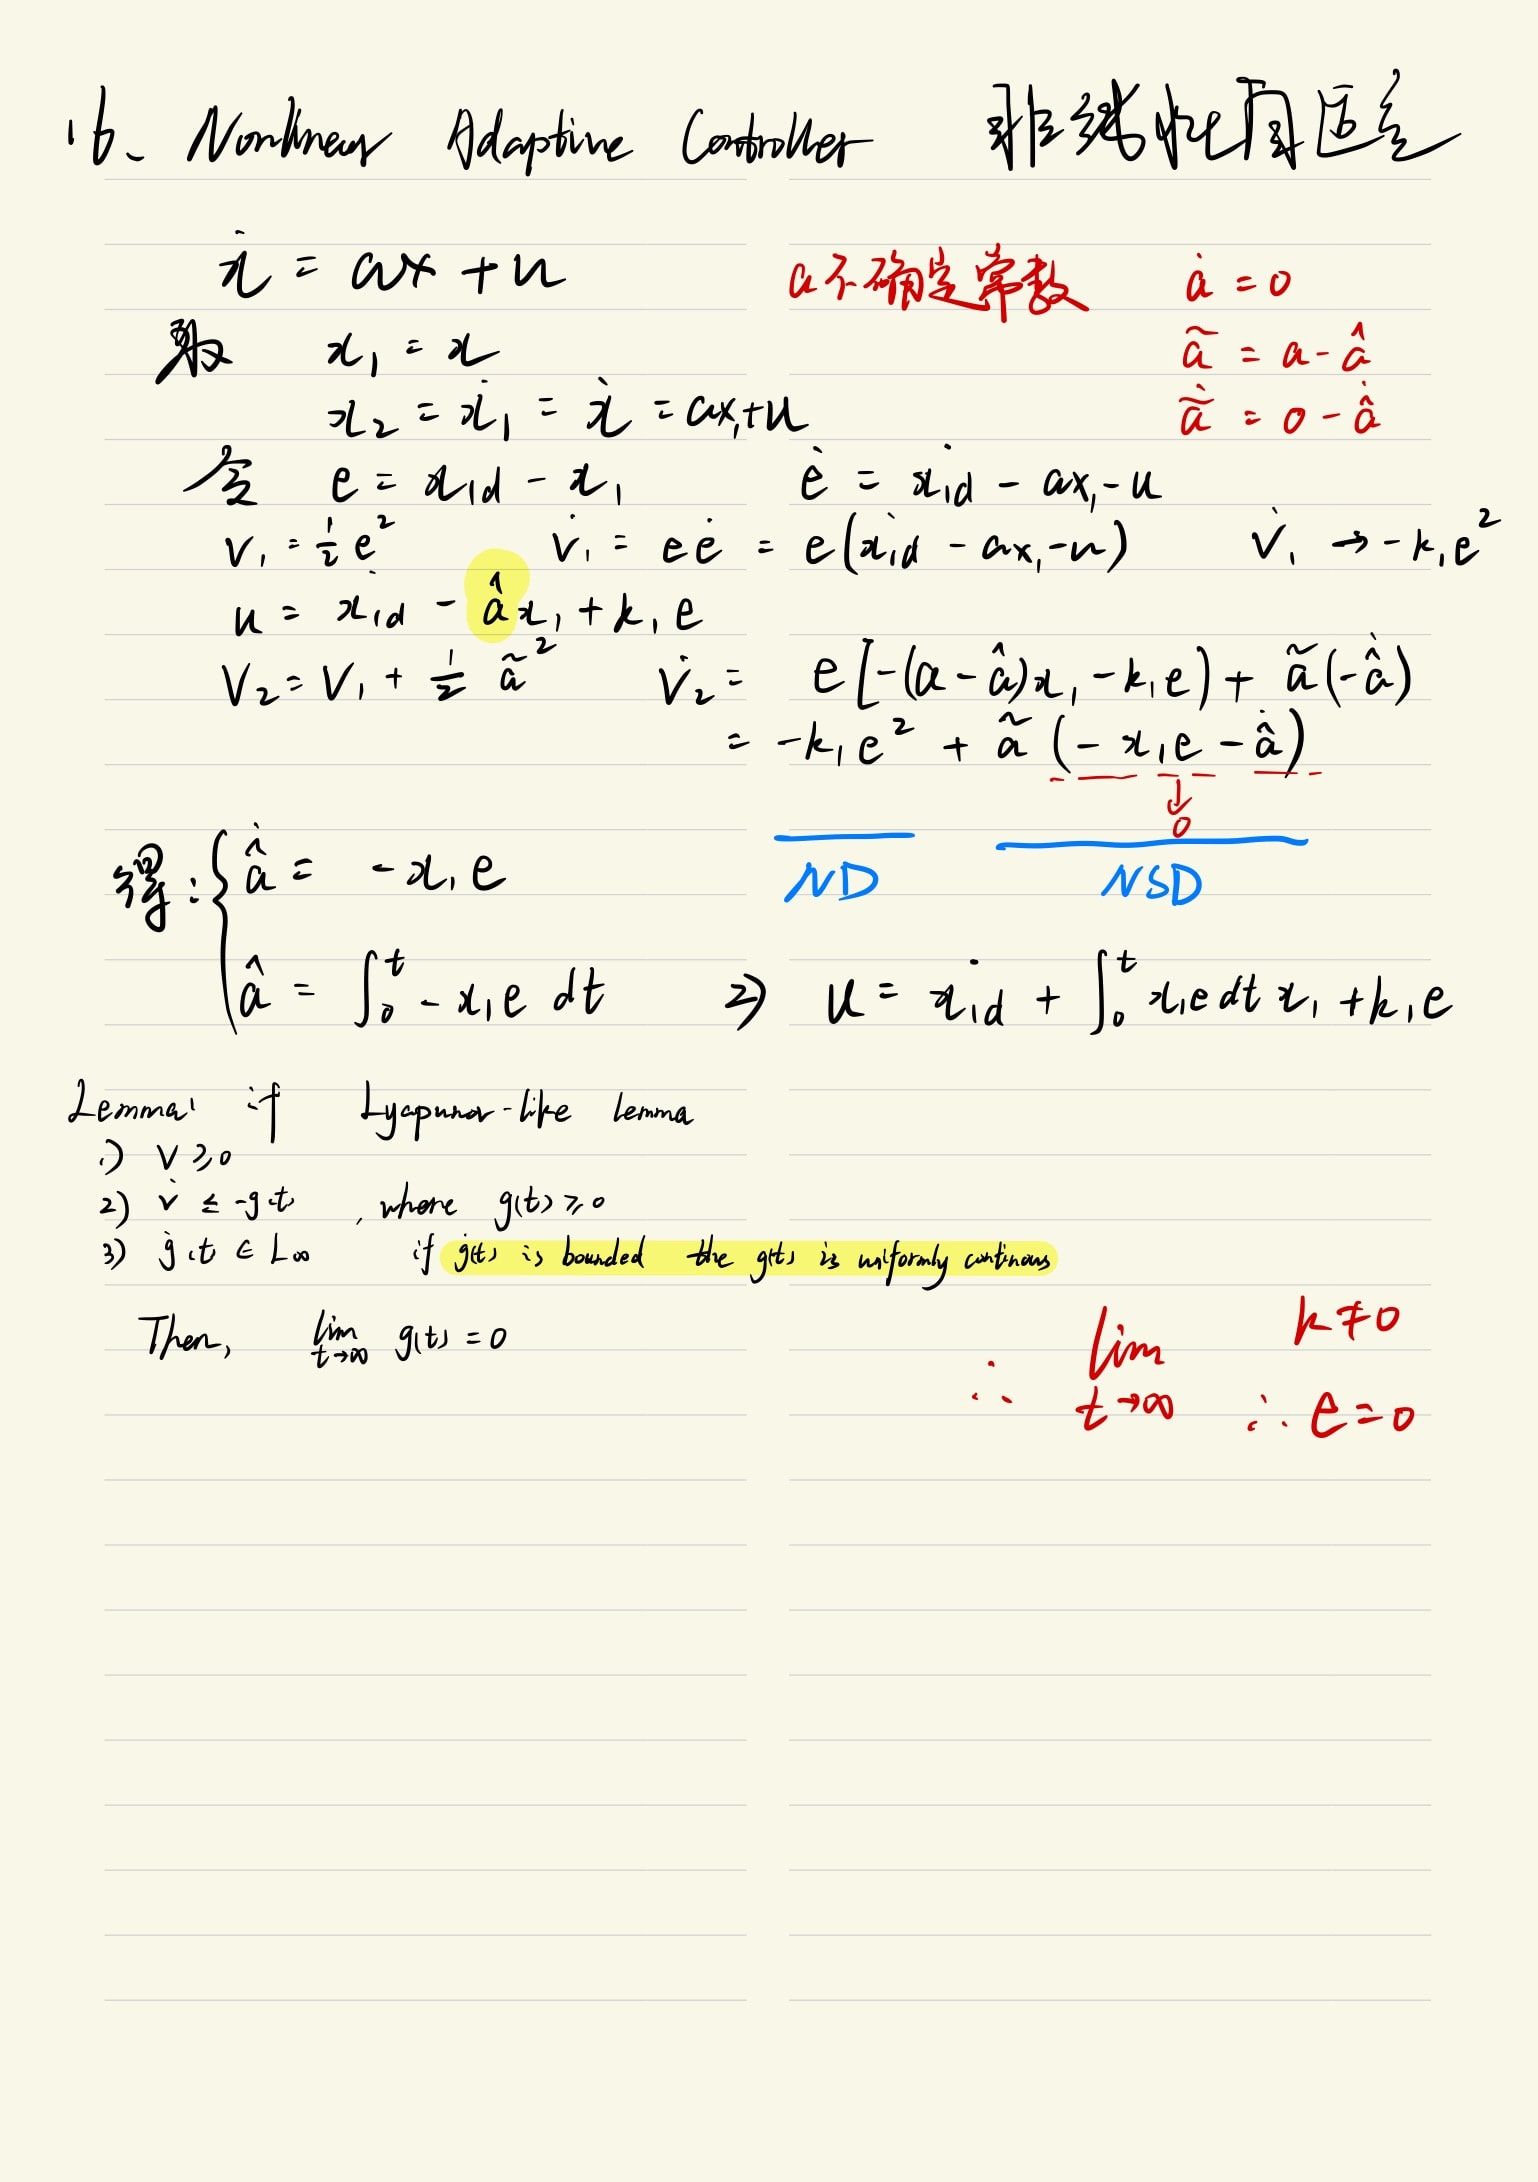 16、Nonlinear Adaptive Controller 非线性自适应
ẋ = ax + u a不确定常数 ȧ = 0
取 x₁ = x ã = a - â
x₂ = ẋ₁ = ẋ = ax₁+u ã̇ = 0 - â̇
令 e = x₁d - x₁ ė = ẋ₁d - ax₁ - u
V₁ = ½ e² V̇₁ = e ė = e(ẋ₁d - ax₁ - u) V̇₁ → -k₁e²
u = ẋ₁d - âx₁ + k₁e
V₂ = V₁ + ½ ã² V̇₂ = e[-(a - â)x₁ - k₁e) + ã(-â̇)
= -k₁e² + ã (- x₁e - â̇)
↓
0
得:{ â̇ = -x₁e ND NSD
â = ∫₀ᵗ - x₁e dt 2) u = ẋ₁d + ∫₀ᵗ x₁e dt x₁ + k₁e
Lemma: if Lyapunov-like lemma
1) V ≥ 0
2) V̇ ≤ -g(t) , where g(t) ≥ 0
3) ġ(t) ∈ L∞ if ġ(t) is bounded the g(t) is uniformly continous
Then, lim t→∞ g(t) = 0
k ≠ 0
∴ lim t→∞ ∴ e = 0